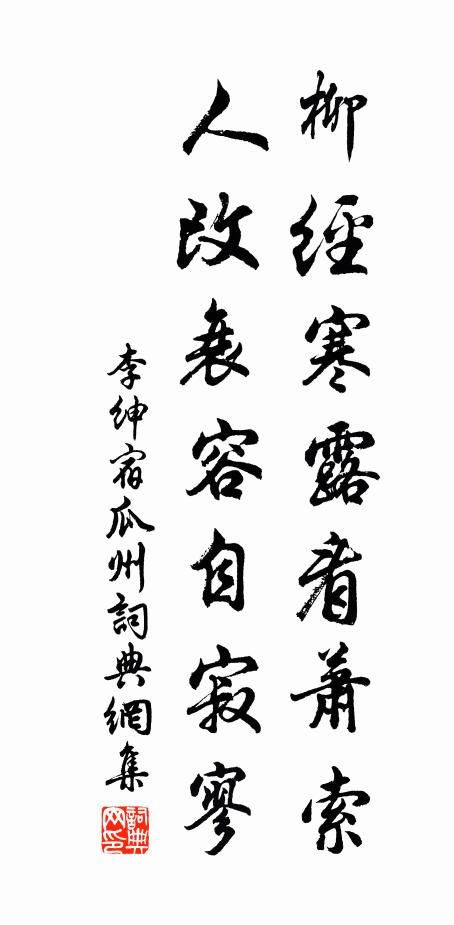 柳經寒露看蕭索
人改衰容自寂寥
李紳宿瓜州詞典網集
詞典網印